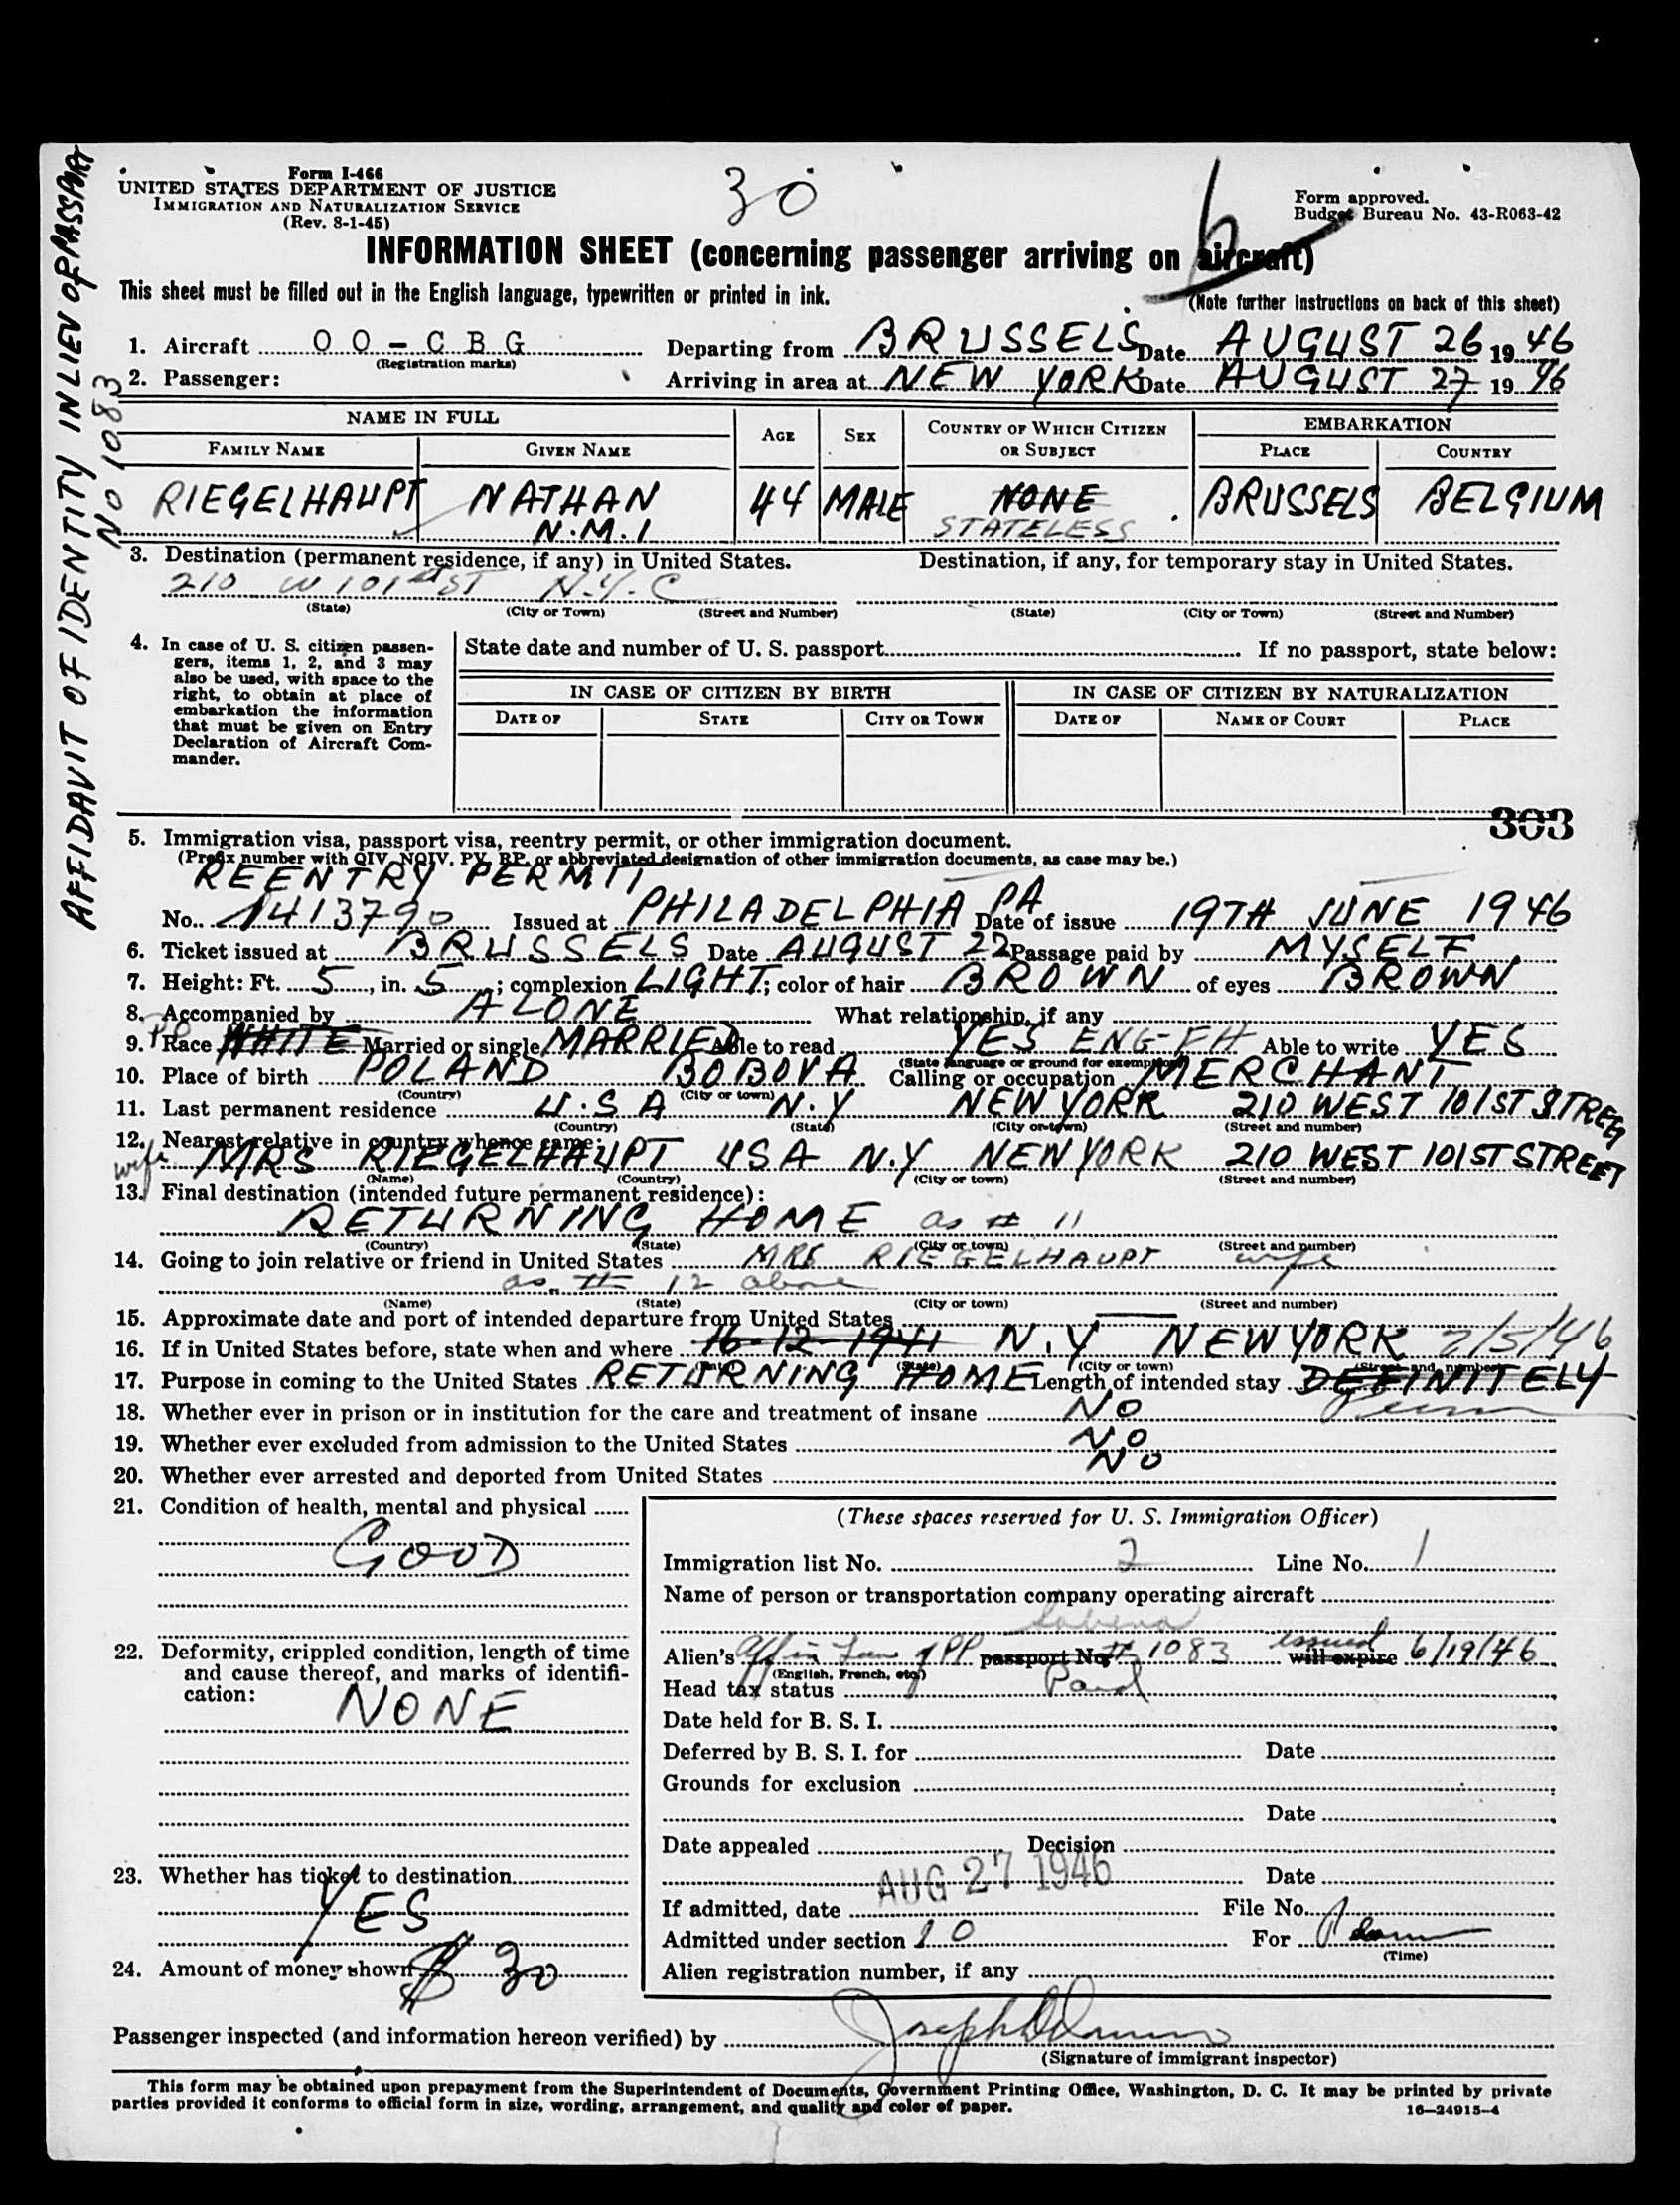 AFFIDAVIT OF IDENTITY IN LIEV OF PASSPORT
NO 1083
Form I-466
UNITED STATES DEPARTMENT OF JUSTICE
IMMIGRATION AND NATURALIZATION SERVICE
(Rev. 8-1-45)
30
Form approved.
Budget Bureau No. 43-R063-42
INFORMATION SHEET (concerning passenger arriving on aircraft)
This sheet must be filled out in the English language, typewritten or printed in ink.
(Note further instructions on back of this sheet)
1. Aircraft OO-CBG Departing from BRUSSELS Date AUGUST 26 1946
(Registration marks)
2. Passenger: Arriving in area at NEW YORK Date AUGUST 27 1946
NAME IN FULL AGE SEX COUNTRY OF WHICH CITIZEN OR SUBJECT EMBARKATION
FAMILY NAME GIVEN NAME PLACE COUNTRY
RIEGELHAUPT NATHAN 44 MALE NONE BRUSSELS BELGIUM
N.M.I STATELESS
3. Destination (permanent residence, if any) in United States. Destination, if any, for temporary stay in United States.
210 W 101st ST N.Y.C
(State) (City or Town) (Street and Number) (State) (City or Town) (Street and Number)
4. In case of U. S. citizen passengers, items 1, 2, and 3 may also be used, with space to the right, to obtain at place of embarkation the information that must be given on Entry Declaration of Aircraft Commander.
State date and number of U. S. passport If no passport, state below:
IN CASE OF CITIZEN BY BIRTH IN CASE OF CITIZEN BY NATURALIZATION
DATE OF STATE CITY OR TOWN DATE OF NAME OF COURT PLACE
303
5. Immigration visa, passport visa, reentry permit, or other immigration document.
(Prefix number with QIV, NQIV, PV, RP, or abbreviated designation of other immigration documents, as case may be.)
REENTRY PERMIT
No. 1413790 Issued at PHILADELPHIA PA Date of issue 19TH JUNE 1946
6. Ticket issued at BRUSSELS Date AUGUST 22 Passage paid by MYSELF
7. Height: Ft. 5, in. 5; complexion LIGHT; color of hair BROWN of eyes BROWN
8. Accompanied by ALONE What relationship, if any
9. Race WHITE Married or single MARRIED Able to read YES ENG-FH Able to write YES
(State language or ground for exemption)
10. Place of birth POLAND BOBOVA Calling or occupation MERCHANT
(Country) (City or town)
11. Last permanent residence U.S.A N.Y NEW YORK 210 WEST 101ST STREG
(Country) (State) (City or town) (Street and number)
12. Nearest relative in country whence came:
wife MRS RIEGELHAUPT USA N.Y NEW YORK 210 WEST 101ST STREET
(Name) (Country) (City or town) (Street and number)
13. Final destination (intended future permanent residence):
RETURNING HOME as # 11
(Country) (State) (City or town) (Street and number)
14. Going to join relative or friend in United States MRS RIEGELHAUPT wife
as # 12 above
(Name) (State) (City or town) (Street and number)
15. Approximate date and port of intended departure from United States
16. If in United States before, state when and where 16-12-1941 N.Y NEW YORK 7/5/46
(Date) (State) (City or town) (Street and number)
17. Purpose in coming to the United States RETURNING HOME Length of intended stay DEFINITELY
Perm
18. Whether ever in prison or in institution for the care and treatment of insane NO
19. Whether ever excluded from admission to the United States NO
20. Whether ever arrested and deported from United States NO
21. Condition of health, mental and physical
GOOD
22. Deformity, crippled condition, length of time and cause thereof, and marks of identification:
NONE
23. Whether has ticket to destination
YES
24. Amount of money shown $ 30
(These spaces reserved for U. S. Immigration Officer)
Immigration list No. 2 Line No. 1
Name of person or transportation company operating aircraft
Sabena
Alien's Aff in Lieu of PP passport No. # 1083 issued will expire 6/19/46
(English, French, etc.)
Head tax status Paid
Date held for B. S. I.
Deferred by B. S. I. for Date
Grounds for exclusion
Date
Date appealed Decision
Date
If admitted, date AUG 27 1946 File No.
Admitted under section 10 For
(Time)
Alien registration number, if any
Passenger inspected (and information hereon verified) by
(Signature of immigrant inspector)
This form may be obtained upon prepayment from the Superintendent of Documents, Government Printing Office, Washington, D. C. It may be printed by private
parties provided it conforms to official form in size, wording, arrangement, and quality and color of paper.
16—24915-4